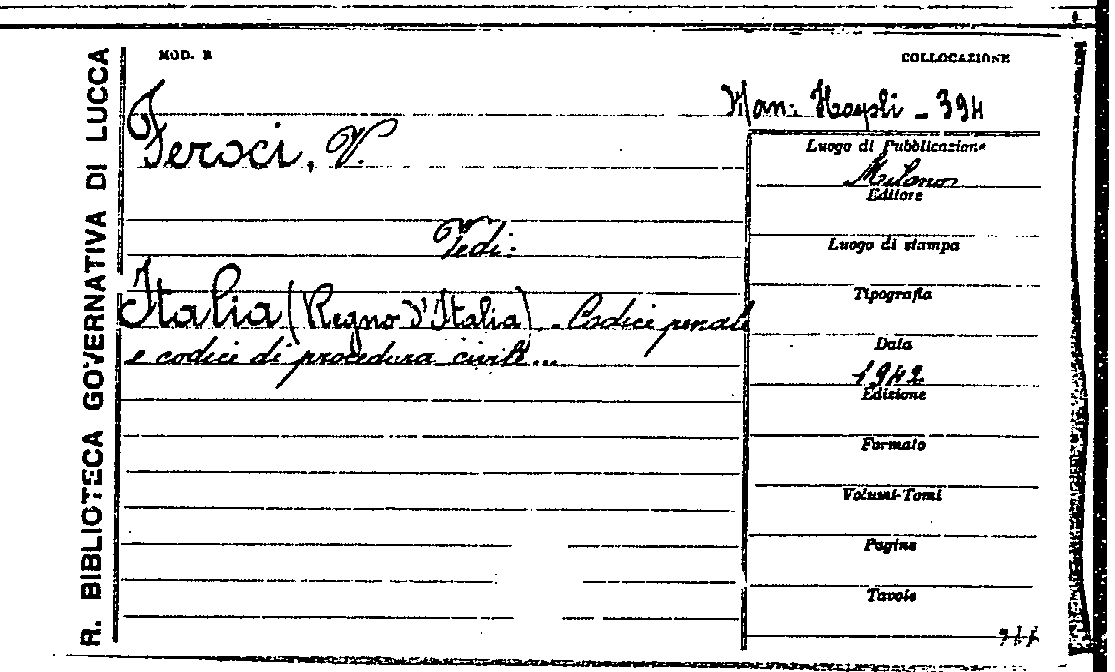 R. BIBLIOTECA GOVERNATIVA DI LUCCA
MOD. B
COLLOCAZIONE
Man: Hoepli - 394
Feroci, V.
Vedi:
Italia (Regno d'Italia) - Codici penale
e codici di procedura civile...
Luogo di Pubblicazione
Milano
Editore
Luogo di stampa
Tipografia
Data
1942
Edizione
Formato
Volumi-Tomi
Pagine
Tavole